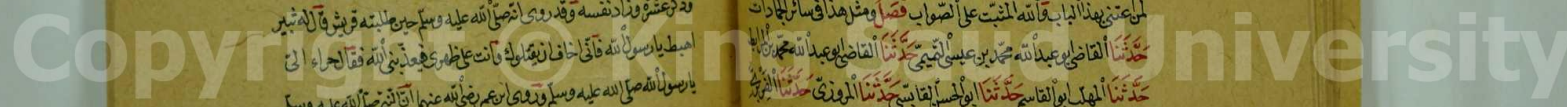 لمن اعتنى بهذا الباب والله المثبت على الصواب فصل ومثل هذا في سائر الجمادات
حدثنا القاضي ابو عبد الله محمد بن عيسى التميمي حدثنا القاضي ابو عبد الله محمد بن المرابط
حدثنا المهلب ابو القاسم حدثنا ابو الحسن القابسي حدثنا المروزي حدثنا الفربري
وذكر عشرة وزاد نفسه وقد روى انه صلى الله عليه وسلم حين طلبته قريش قال له ثبير
اهبط يا رسول الله فاني اخاف ان يقتلوك وانت على ظهري فيعذبني الله فقال حراء الي
يا رسول الله صلى الله عليه وسلم وروى ابن عمر رضي الله عنهما ان النبي صلى الله عليه وسلم
Copyright © King Saud University